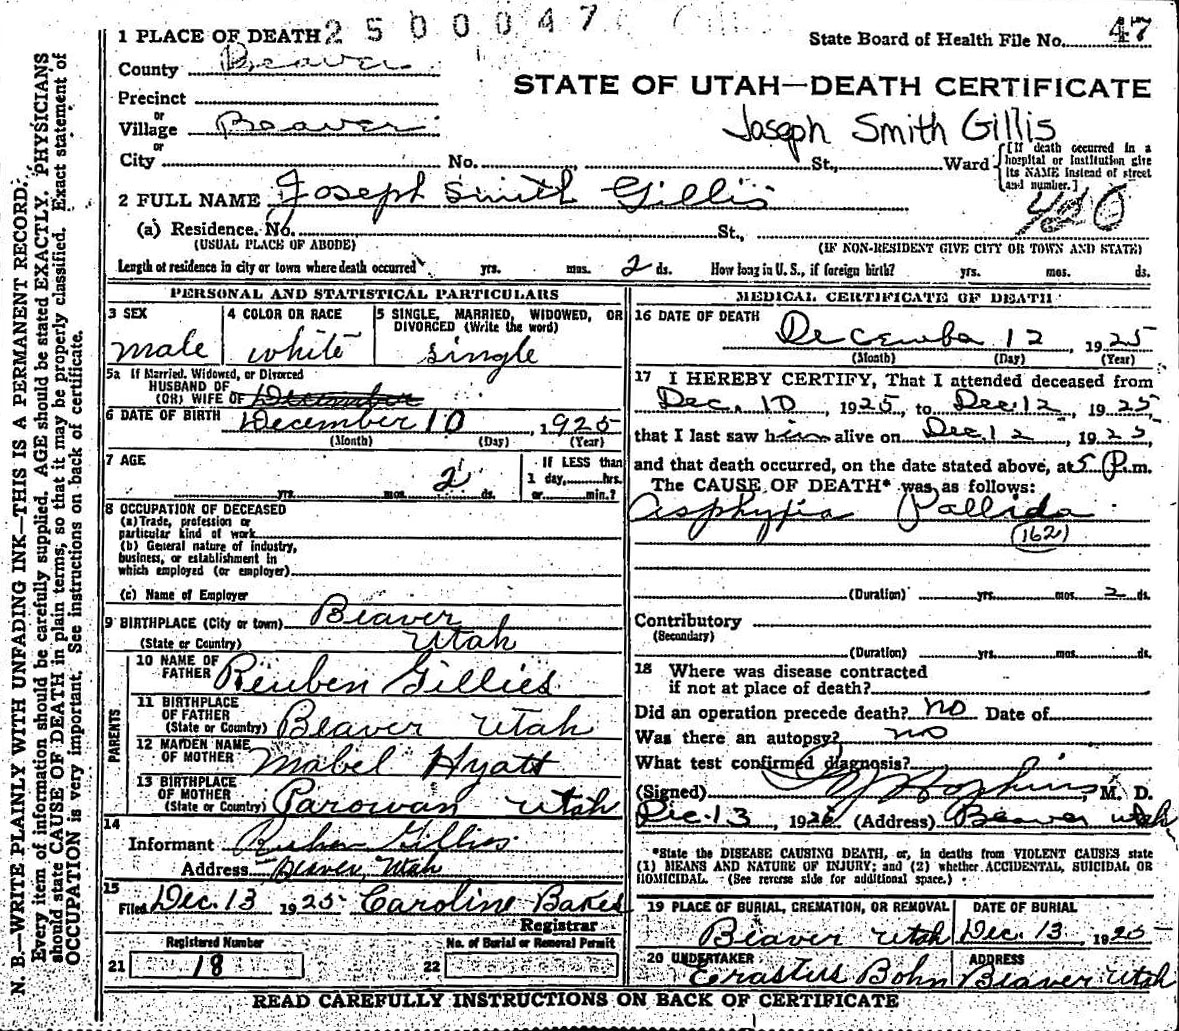 2500047
State Board of Health File No. 47
1 PLACE OF DEATH
County Beaver
STATE OF UTAH—DEATH CERTIFICATE
Precinct
or
Village Beaver
Joseph Smith Gillis
or
City No. St., Ward
[If death occurred in a hospital or institution give its NAME instead of street and number.]
2 FULL NAME Joseph Smith Gillis
(a) Residence. No. St.,
(USUAL PLACE OF ABODE) (IF NON-RESIDENT GIVE CITY OR TOWN AND STATE)
Length of residence in city or town where death occurred yrs. mos. 2 ds. How long in U. S., if foreign birth? yrs. mos. ds.
PERSONAL AND STATISTICAL PARTICULARS
3 SEX
male
4 COLOR OR RACE
white
5 SINGLE, MARRIED, WIDOWED, OR DIVORCED (Write the word)
single
5a If Married, Widowed, or Divorced
HUSBAND OF
(OR) WIFE OF
6 DATE OF BIRTH December 10, 1925
(Month) (Day) (Year)
7 AGE
yrs. mos. 2 ds.
If LESS than
1 day, hrs.
or min.?
8 OCCUPATION OF DECEASED
(a) Trade, profession or
particular kind of work
(b) General nature of industry,
business, or establishment in
which employed (or employer)
(c) Name of Employer
9 BIRTHPLACE (City or town) Beaver
(State or Country) Utah
PARENTS
10 NAME OF FATHER Reuben Gillies
11 BIRTHPLACE OF FATHER
(State or Country) Beaver Utah
12 MAIDEN NAME OF MOTHER Mabel Hyatt
13 BIRTHPLACE OF MOTHER
(State or Country) Parowan Utah
14
Informant Reuben Gillies
Address Beaver, Utah
15
Filed Dec. 13 1925 Caroline Baker
Registrar
Registered Number
21 18
No. of Burial or Removal Permit
22
MEDICAL CERTIFICATE OF DEATH
16 DATE OF DEATH
December 12, 1925
(Month) (Day) (Year)
17 I HEREBY CERTIFY, That I attended deceased from
Dec. 10, 1925, to Dec. 12, 1925,
that I last saw him alive on Dec 12, 1925,
and that death occurred, on the date stated above, at 5 P.m.
The CAUSE OF DEATH* was as follows:
Asphyxia Pallida
(162)
(Duration) yrs. mos. 2 ds.
Contributory
(Secondary)
(Duration) yrs. mos. ds.
18 Where was disease contracted
if not at place of death?
Did an operation precede death? no Date of
Was there an autopsy? no
What test confirmed diagnosis?
(Signed) Hopkins, M. D.
Dec. 13, 1925 (Address) Beaver Utah
*State the DISEASE CAUSING DEATH, or, in deaths from VIOLENT CAUSES state
(1) MEANS AND NATURE OF INJURY; and (2) whether ACCIDENTAL, SUICIDAL OR
HOMICIDAL. (See reverse side for additional space.)
19 PLACE OF BURIAL, CREMATION, OR REMOVAL
Beaver Utah
DATE OF BURIAL
Dec. 13, 1925
20 UNDERTAKER
Erastus Bohn
ADDRESS
Beaver Utah
READ CAREFULLY INSTRUCTIONS ON BACK OF CERTIFICATE
N. B.—WRITE PLAINLY WITH UNFADING INK—THIS IS A PERMANENT RECORD.
Every item of information should be carefully supplied. AGE should be stated EXACTLY. PHYSICIANS
should state CAUSE OF DEATH in plain terms, so that it may be properly classified. Exact statement of
OCCUPATION is very important. See instructions on back of certificate.